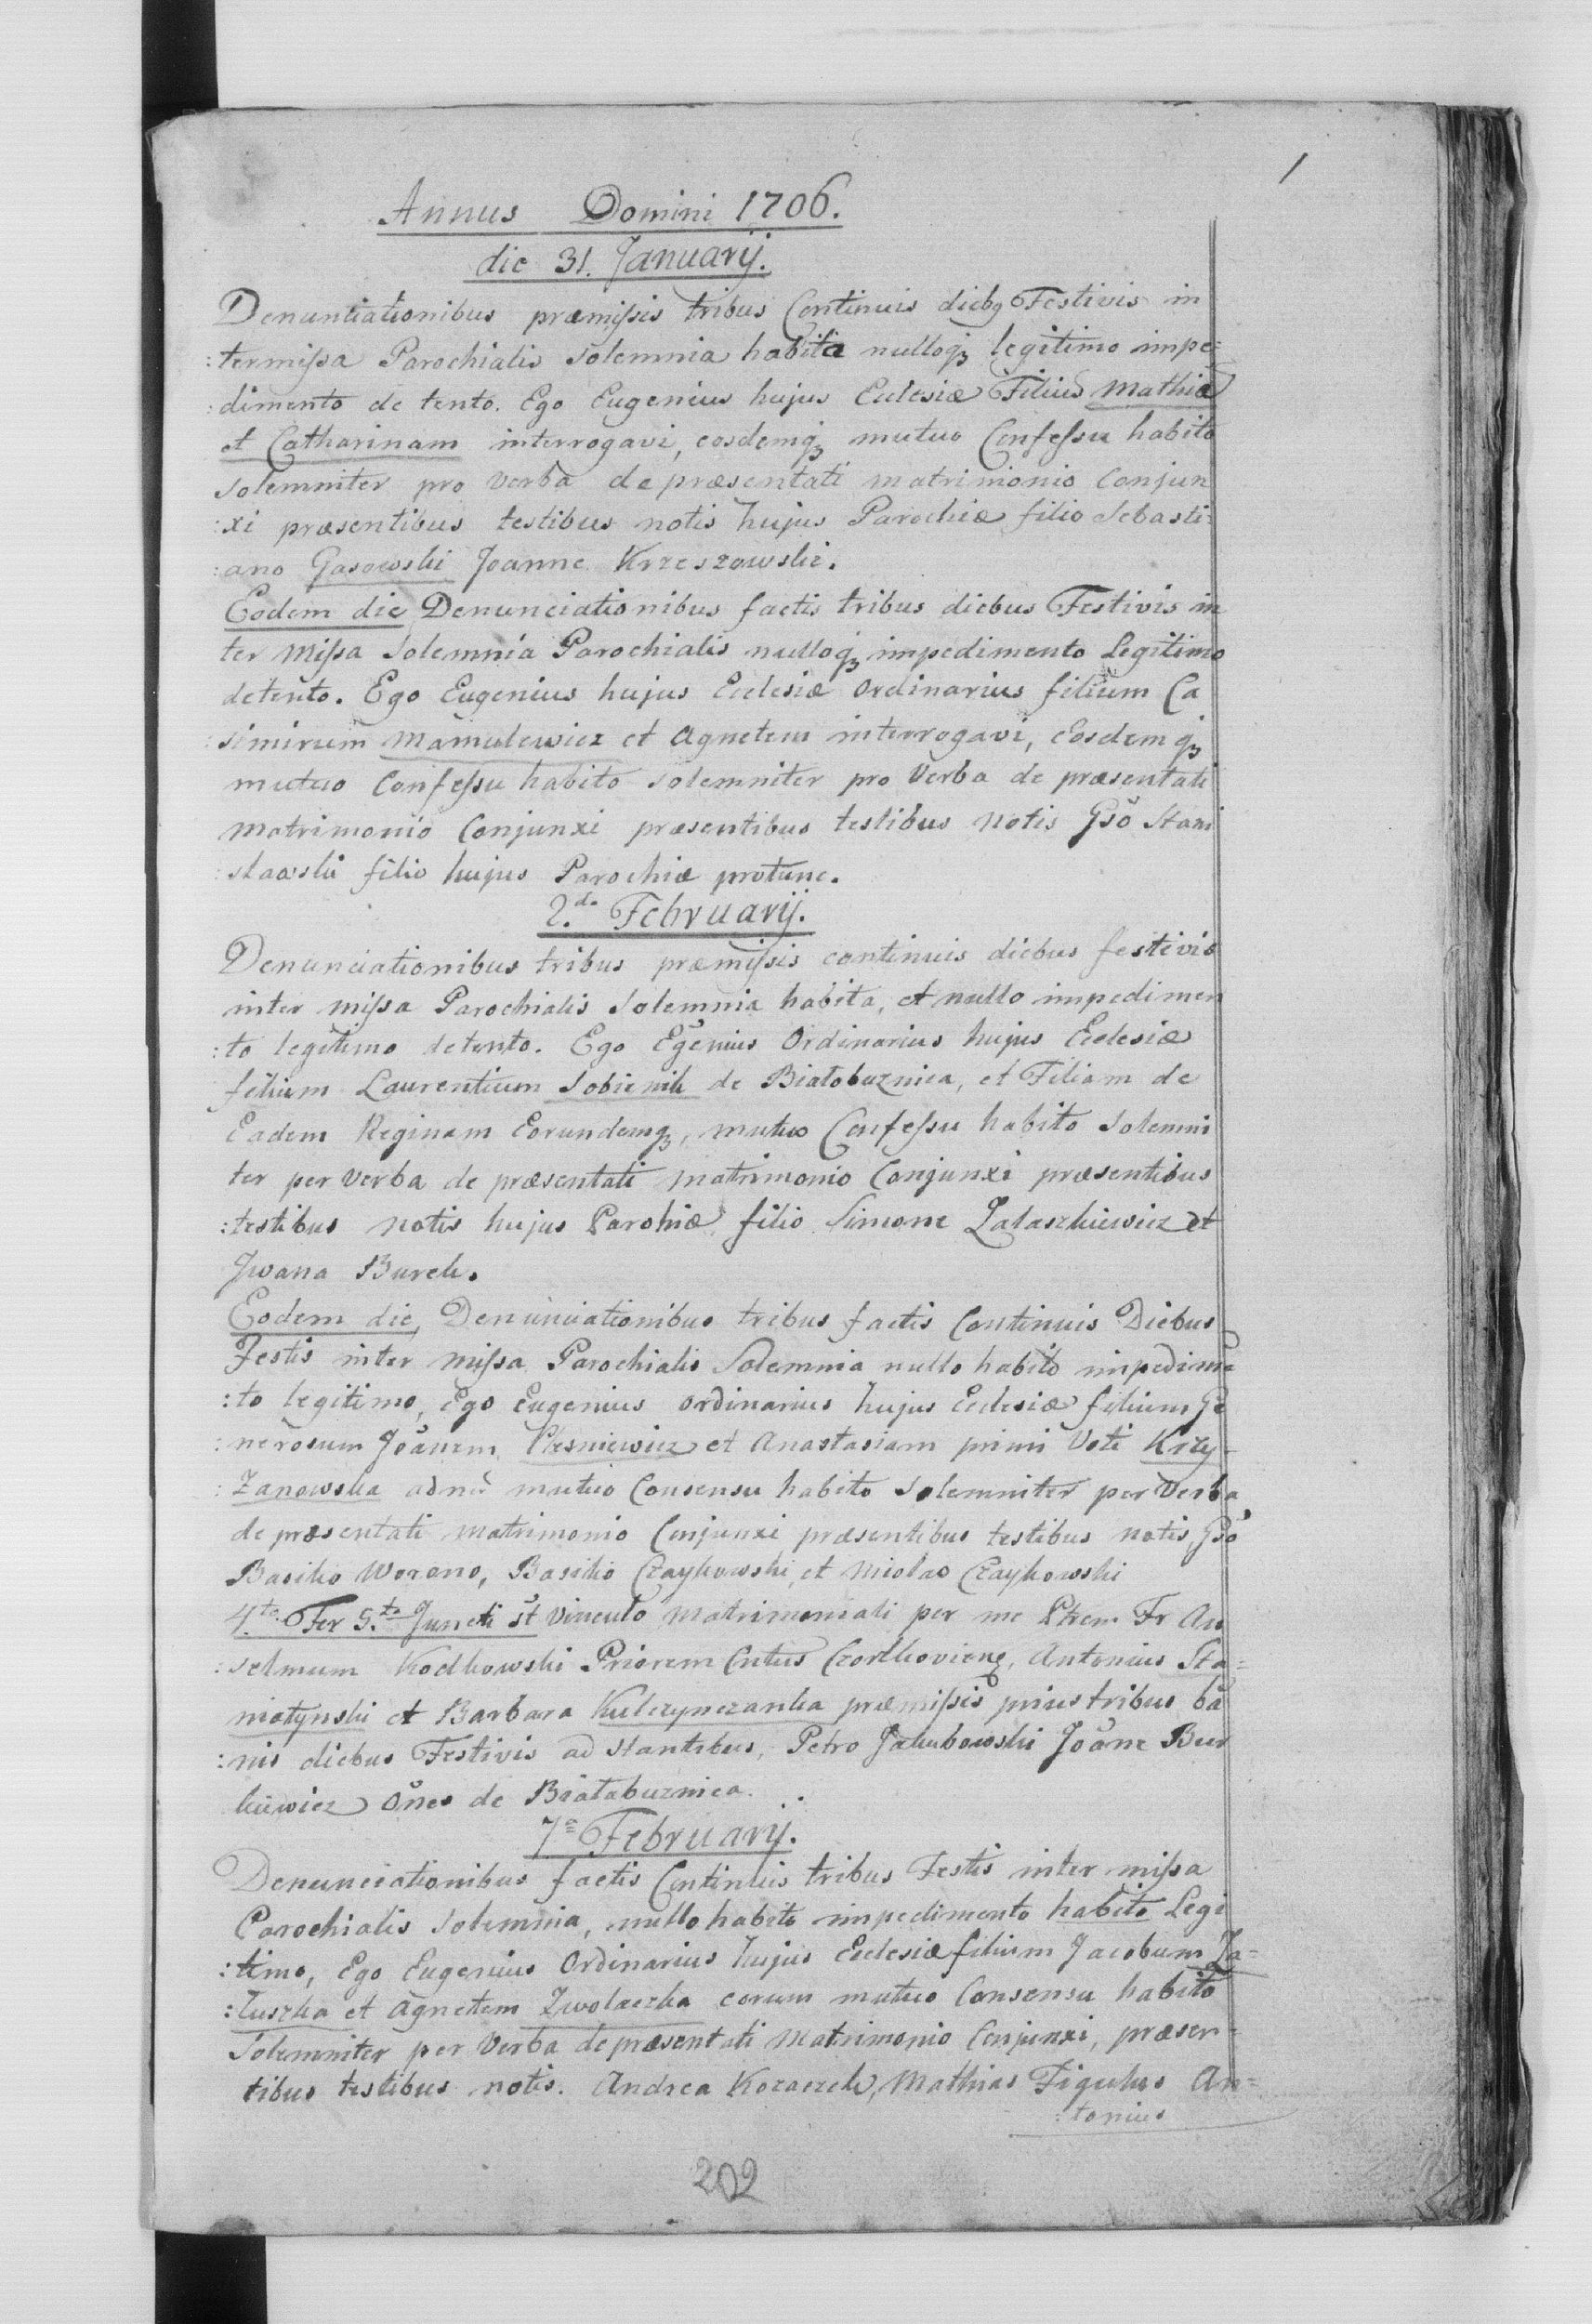 1
Annus Domini 1706.
die 31. Januarij.
Denuntiationibus præmissis tribus Continuis dieb9 Festivis in
:termissa Parochialis solemnia habita nulloq3 legitimo impe=
:dimento de tento. Ego Eugenius hujus Ecclesiæ Filius Mathiæ
et Catharinam interrogavi, eosdemq3 mutuo Confessu habito
Solemniter pro verba de præsentati matrimonio Conjun
:xi præsentibus testibus notis hujus Parochiæ filio Sebasti:
:ano Gasowski Joanne Krzeszowski.
Eodem die Denunciationibus factis tribus diebus Festivis in
ter Missa Solemnia Parochialis nulloq3 impedimento Legitimo
detento. Ego Eugenius hujus Ecclesiæ Ordinarius filium Ca
:simirum Mamulewicz et Agnetem interrogavi, Eosdemq3
mutuo Confessu habito solemniter pro Verba de præsentati
Matrimonio Conjunxi præsentibus testibus Notis Gsō Stani
:slawski filio hujus Parochiæ protunc.
2.da Februarij.
Denunciationibus tribus præmissis continuis diebus festivis
inter missa Parochialis Solemnia habita, et nullo impedimen
:to legitimo detento. Ego Egēnius Ordinarius hujus Ecclesiæ
filium Laurentium Sobienik de Białobuznica, et Filiam de
Eadem Reginam Eorundemq3, mutuo Confessu habito Solemni
ter per Verba de præsentati Matrimonio Conjunxi præsentibus
:testibus notis hujus Parohiæ filio Simone Zalaszkiewicz et
Jwana Burek.
Eodem die, Denunciationibus tribus factis Continuis Diebus
Festis inter Missa Parochialis Solemnia nullo habito impedimē
:to legitimo, Ego Eugenius Ordinarius hujus Ecclesiæ filium Ge
:nerosum Joānem Plesniewicz et Anastasiam primi Voti Krzy=
:zanowska mutuo Consensu habito Solemniter per Verba
de præsentati Matrimonio Conjunxi præsentibus testibus notis, Gsō
Basilio Worono, Basilio Czaykowski, et Micolao Czaykowski
4.to Fer 5.ta Juncti st̄ Vinculo Matrimoniali per me Ptrem Fr An
:selmum Kodkowski Priorem Cntus Czortkovienq, Antonius Sta=
niatynski et Barbara Kulczynczanka præmissis prius tribus bā
:nis diebus Festivis ad stantibus, Petro Jakubowski Joāne Bur
kiewicz oñes de Białabuznica.
7a Februarij.
Denunciationibus factis Continuis tribus Festis inter missa
Parochialis Solemnia, nullo habito impedimento habito Legi
:timo, Ego Eugenius Ordinarius hujus Ecclesiæ filium Jacobum Za=
:łuszka et Agnetem Zwolaczka eorum mutuo Consensu habito
Solemniter per Verba de præsentati Matrimonio Conjunxi, præsen=
tibus testibus notis. Andrea Kozaczek, Mathias Figulus An=
:tonius
202